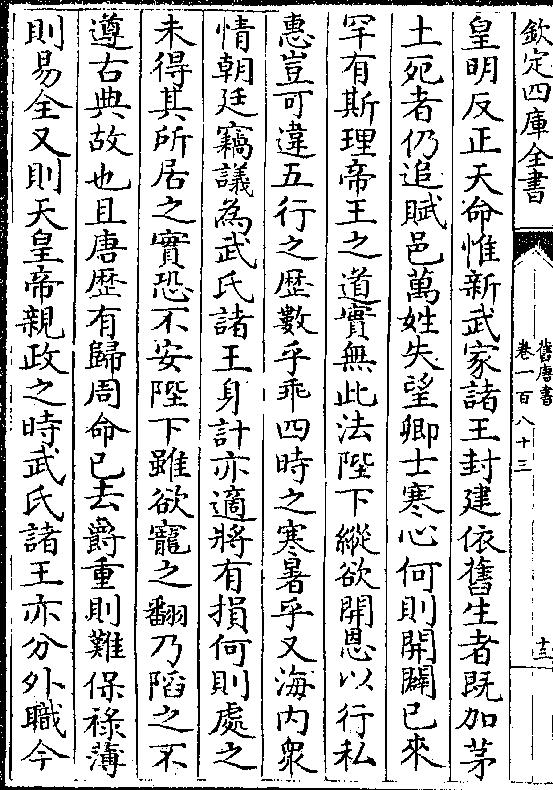 欽定四庫全書
舊唐書
卷一百八十三
十三
皇明反正天命惟新武家諸王封建依舊生者既加茅
土死者仍追賦邑萬姓失望卿士寒心何則開闢已來
罕有斯理帝王之道實無此法陛下縱欲開恩以行私
惠豈可違五行之歴數乎乖四時之寒暑乎又海内衆
情朝廷竊議為武氏諸王身計亦適將有損何則處之
未得其所居之實恐不安陛下雖欲寵之翻乃陷之不
遵古典故也且唐歴有歸周命已去爵重則難保祿薄
則易全又則天皇帝親政之時武氏諸王亦分外職今